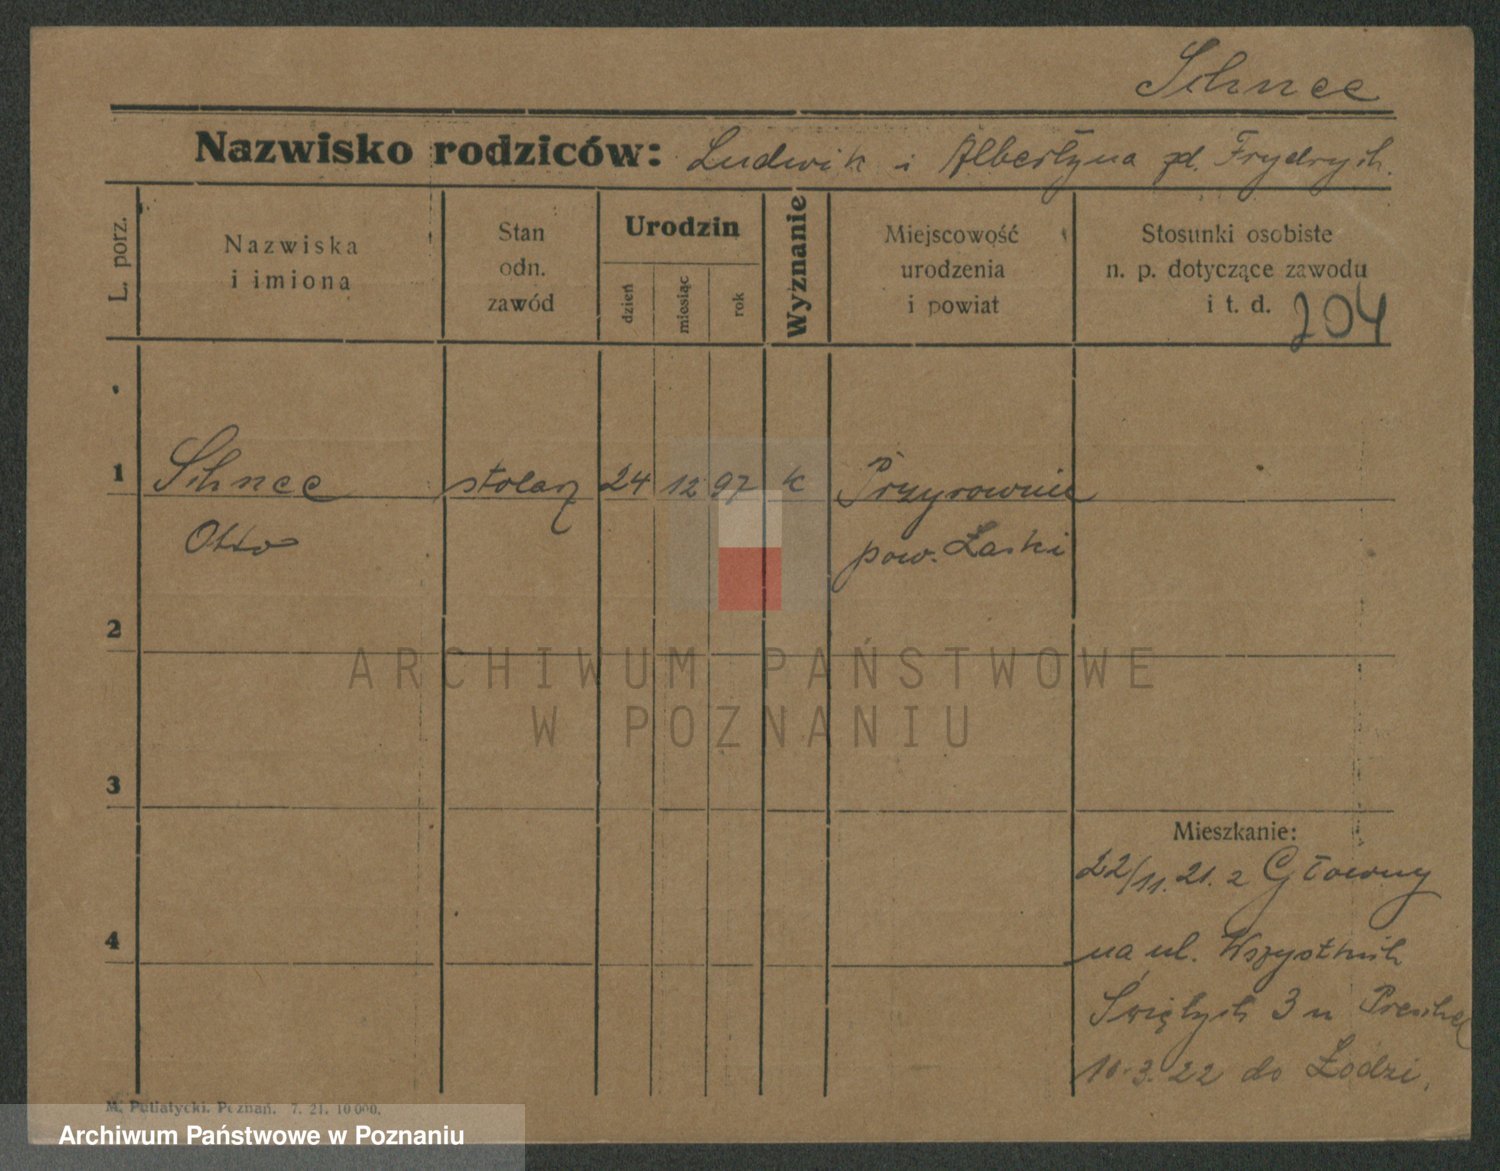 Schnee
Nazwisko rodziców: Ludwik i Albertyna zd. Frydrych.
L. porz.
Nazwiska
i imiona
Stan
odn.
zawód
Urodzin
dzień
miesiąc
rok
Wyznanie
Miejscowość
urodzenia
i powiat
Stosunki osobiste
n. p. dotyczące zawodu
i t. d. 204
1 Schnee stolarz 24 12 97 k Przyrownie
Otto pow. Łaski
2
3
Mieszkanie:
22/11.21. z Główny
4
na ul. Wszystkich
Świętych 3 u
10.3.22 do Łodzi.
M. Putiatycki. Poznań. 7. 21. 10000.
ARCHIWUM PAŃSTWOWE
W POZNANIU
Archiwum Państwowe w Poznaniu